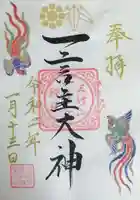 奉拝
一言主大神
令和二年
一月十三日